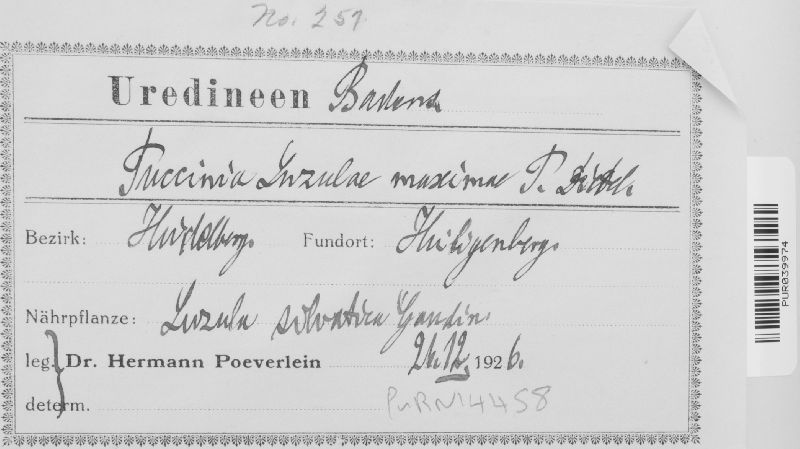 No. 251.
Uredineen Badens
Puccinia Luzulae maximae P. Dietel.
Bezirk: Heidelberg. Fundort: Heiligenberg.
Nährpflanze: Luzula silvatica Gaudin.
leg. Dr. Hermann Poeverlein 26.12.1926.
determ. PURN14458
PUR039974